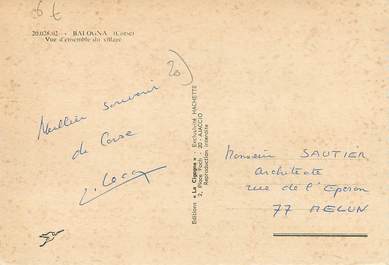 6 €
20.028.02 - BALOGNA (Corse)
Vue d'ensemble du village
20
Meilleur souvenir
de Corse
Editions « La Cigogne » - Exclusivité HACHETTE
2, Place Foch - 20 - AJACCIO
Reproduction interdite
Monsieur SAUTIER
Architecte
rue de l'Eperon
77 MELUN